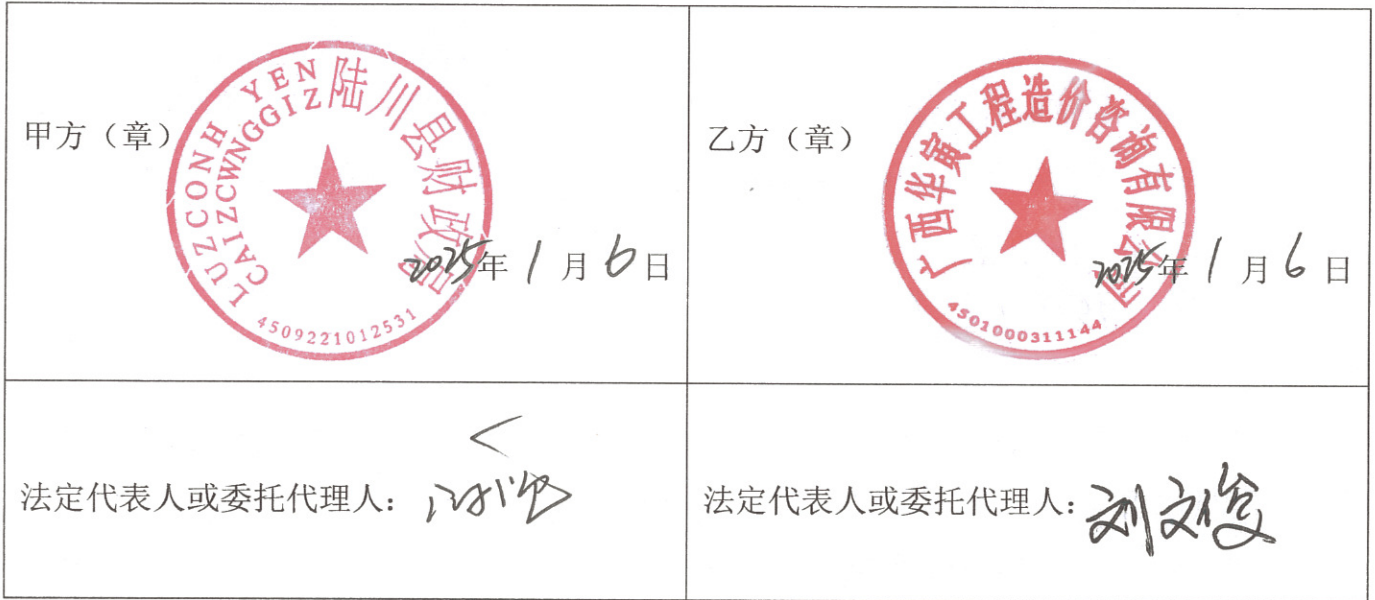 甲方（章）
LUZCONH YEN
CAIZCWNGGIZ
陆川县财政局
4509221012531
2025年1月6日
乙方（章）
广西华寅工程造价咨询有限公司
4501000311144
2025年1月6日
法定代表人或委托代理人：
法定代表人或委托代理人：刘文俊